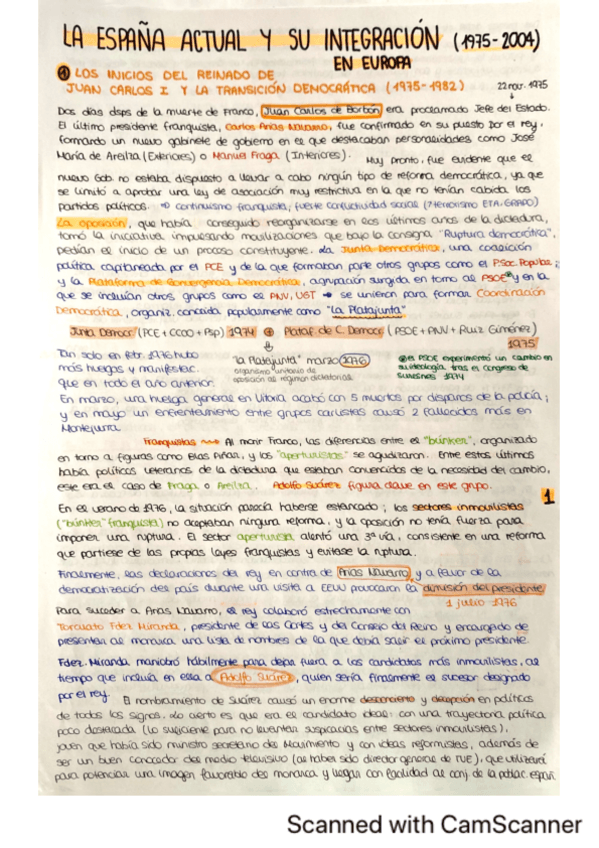 LA ESPAÑA ACTUAL Y SU INTEGRACIÓN (1975-2004)
EN EUROPA
1 LOS INICIOS DEL REINADO DE
JUAN CARLOS I Y LA TRANSICIÓN DEMOCRÁTICA (1975-1982)
22 nov. 1975
Dos días dsps de la muerte de Franco, Juan Carlos de Borbón era proclamado Jefe del Estado.
El último presidente franquista, Carlos Arias Navarro, fue confirmado en su puesto por el rey,
formando un nuevo gabinete de gobierno en el que destacaban personalidades como José
María de Areilza (Exteriores) o Manuel Fraga (Interiores). Muy pronto, fue evidente que el
nuevo Gob no estaba dispuesto a llevar a cabo ningún tipo de reforma democrática, ya que
se limitó a aprobar una ley de asociación muy restrictiva en la que no tenían cabida los
partidos políticos. continuismo franquista, fuerte conflictividad social (terrorismo ETA, GRAPO)
La oposición, que había conseguido reorganizarse en los últimos años de la dictadura,
tomó la iniciativa impulsando movilizaciones que bajo la consigna "Ruptura democrática",
pedían el inicio de un proceso constituyente. La Junta Democrática, una coalición
política capitaneada por el PCE y de la que formaban parte otros grupos como el P.Soc.Popular;
y la Plataforma de Convergencia Democrática, agrupación surgida en torno al PSOE y en la
que se incluían otros grupos como el PNV, UGT → se unieron para formar Coordinación
Democrática, organiz. conocida popularmente como "La Platajunta"
Junta Democr (PCE + CCOO + Psp) 1974 ⊕ Plataf. de C. Democr (PSOE + PNV + Ruiz Giménez)
1975
Tan solo en febr. 1976 hubo
más huelgas y manifestac.
que en todo el año anterior.
"la Platajunta" marzo 1976
organismo unitario de
oposición al régimen dictatorial
el PSOE experimentó un cambio en
su ideología tras el congreso de
Suresnes 1974
En marzo, una huelga general en Vitoria acabó con 5 muertos por disparos de la policía;
y en mayo un enfrentamiento entre grupos carlistas causó 2 fallecidos más en
Montejurra.
Franquistas → Al morir Franco, las diferencias entre el "búnker", organizado
en torno a figuras como Blas Piñar, y los "aperturistas" se agudizaron. Entre estos últimos
había políticos veteranos de la dictadura que estaban convencidos de la necesidad del cambio,
este era el caso de Fraga o Areilza. Adolfo Suárez figura clave en este grupo.
1
En el verano de 1976, la situación parecía haberse estancado; los sectores inmovilistas
("búnker" franquista) no aceptaban ninguna reforma, y la oposición no tenía fuerza para
imponer una ruptura. El sector aperturista alentó una 3ª vía, consistente en una reforma
que partiese de las propias leyes franquistas y evitase la ruptura.
Finalmente, las declaraciones del rey en contra de Arias Navarro y a favor de la
democratización del país durante una visita a EEUU provocaron la dimisión del presidente
1 julio 1976
Para suceder a Arias Navarro, el rey colaboró estrechamente con
Torcuato Fdez Miranda, presidente de las Cortes y del Consejo del Reino y encargado de
presentar al monarca una lista de nombres de la que debía salir el próximo presidente.
Fdez. Miranda maniobró hábilmente para dejar fuera a los candidatos más inmovilistas, al
tiempo que incluía en ella a Adolfo Suárez, quien sería finalmente el sucesor designado
por el rey.
El nombramiento de Suárez causó un enorme desconcierto y decepción en políticos
de todos los signos. Lo cierto es que era el candidato ideal: con una trayectoria política
poco destacada (lo suficiente para no levantar suspicacias entre sectores inmovilistas),
joven que había sido ministro secretario del Movimiento y con ideas reformistas, además de
ser un buen conocedor del medio televisivo (al haber sido director general de TVE), que utilizará
para potenciar una imagen favorable del monarca y llegar con facilidad al conj. de la poblac. españ
Scanned with CamScanner